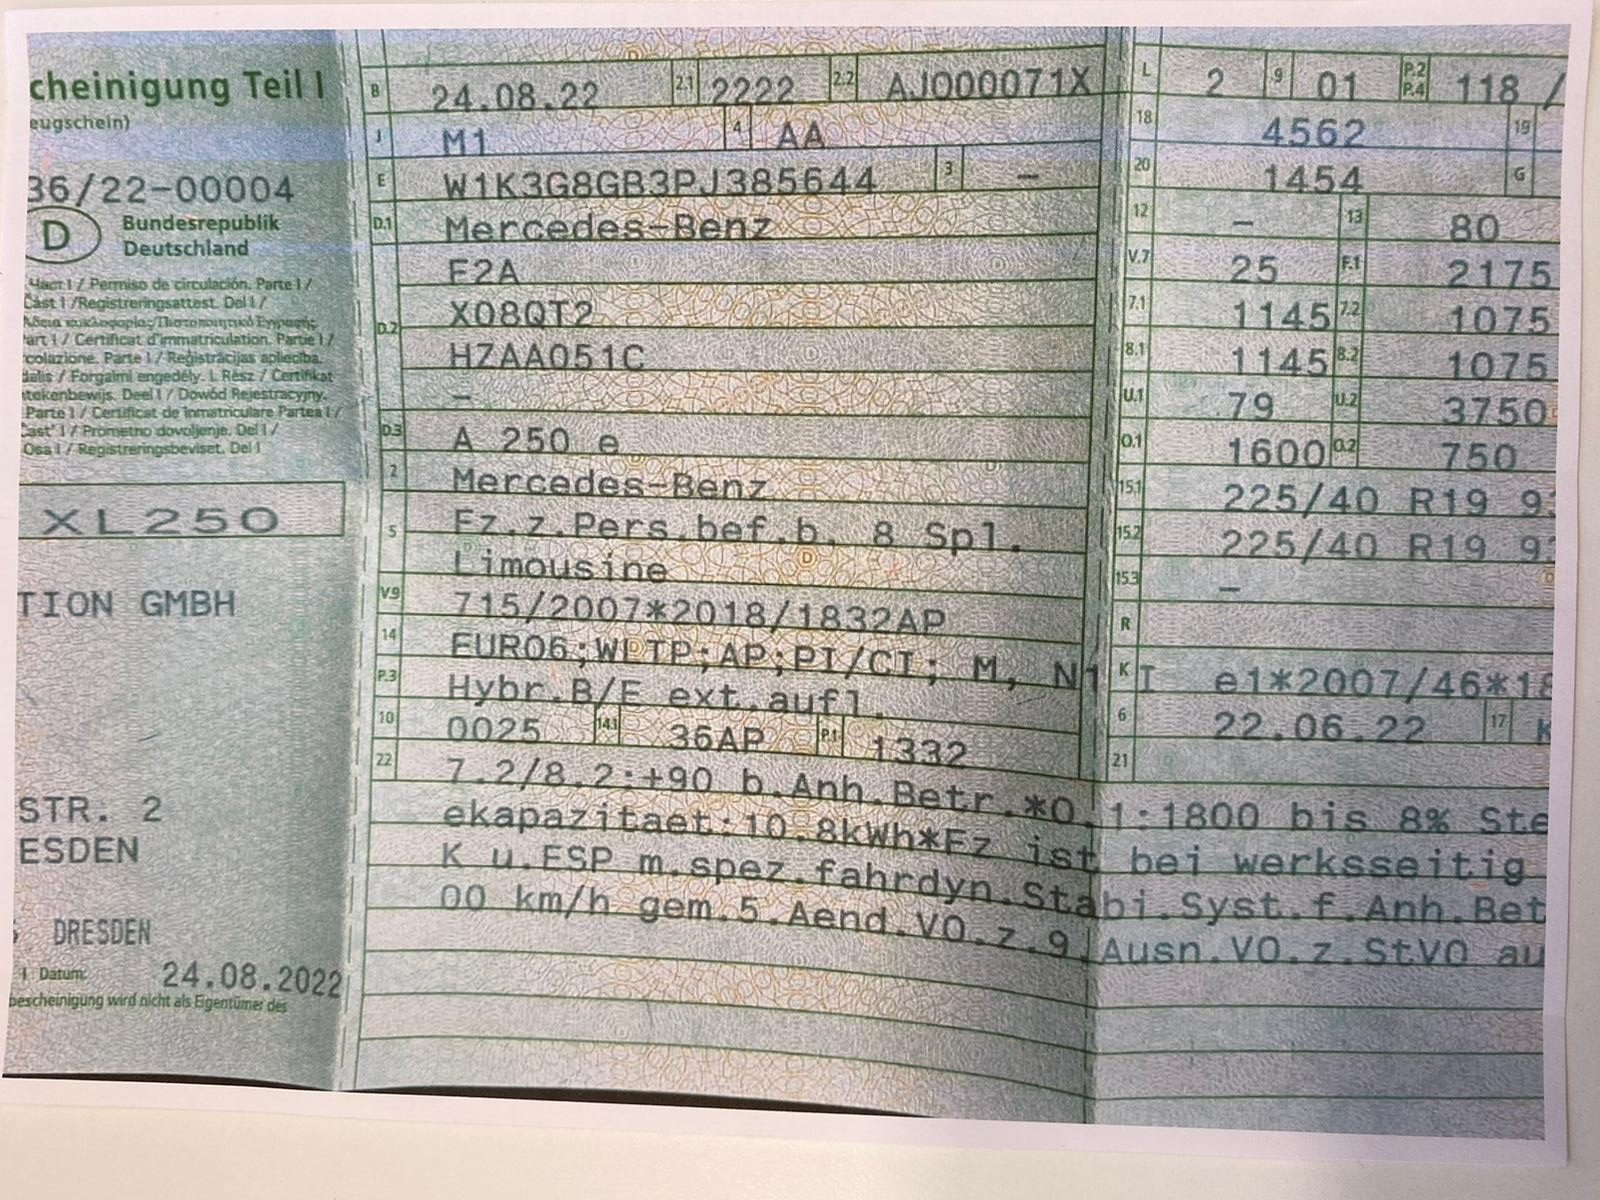 cheinigung Teil I
eugschein)
36/22-00004
D
Bundesrepublik
Deutschland
Част I / Permiso de circulación. Parte I /
Část I /Registreringsattest. Del I /
Άδεια κυκλοφορίας/Πιστοποιητικό Εγγραφής
art I / Certificat d'immatriculation. Partie I /
colazione. Parte I / Reģistrācijas apliecība.
dalis / Forgalmi engedély. I. Rész / Certifikat
tekenbewijs. Deel I / Dowód Rejestracyjny.
Parte I / Certificat de înmatriculare Partea I /
Časť I / Prometno dovoljenje. Del I /
Osa I / Registreringsbeviset. Del I
XL250
TION GMBH
STR. 2
ESDEN
DRESDEN
Datum: 24.08.2022
bescheinigung wird nicht als Eigentümer des
B 24.08.22 2.1 2222 2.2 AJO00071X
J M1 4 AA
E W1K3G8GB3PJ385644 3 –
D.1 Mercedes-Benz
F2A
D.2 X08QT2
HZAA051C
–
D.3 A 250 e
2 Mercedes-Benz
5 Fz.z.Pers.bef.b. 8 Spl.
Limousine
V.9 715/2007*2018/1832AP
14 EURO6;WLTP;AP;PI/CI; M, N1 I
P.3 Hybr.B/E ext.aufl.
10 0025 14.1 36AP P.1 1332
L 2 9 01 P.2 P.4 118 /
18 4562 19
20 1454 G
12 – 13 80
V.7 25 F.1 2175
7.1 1145 7.2 1075
8.1 1145 8.2 1075
U.1 79 U.2 3750
O.1 1600 O.2 750
15.1 225/40 R19 93
15.2 225/40 R19 93
15.3 –
R
K e1*2007/46*18
6 22.06.22 17 K
21
22 7.2/8.2:+90 b.Anh.Betr.*O.1:1800 bis 8% Ste
ekapazitaet:10.8kWh*Fz ist bei werksseitig
K u.ESP m.spez.fahrdyn.Stabi.Syst.f.Anh.Bet
00 km/h gem.5.Aend.VO.z.9.Ausn.VO.z.StVO au